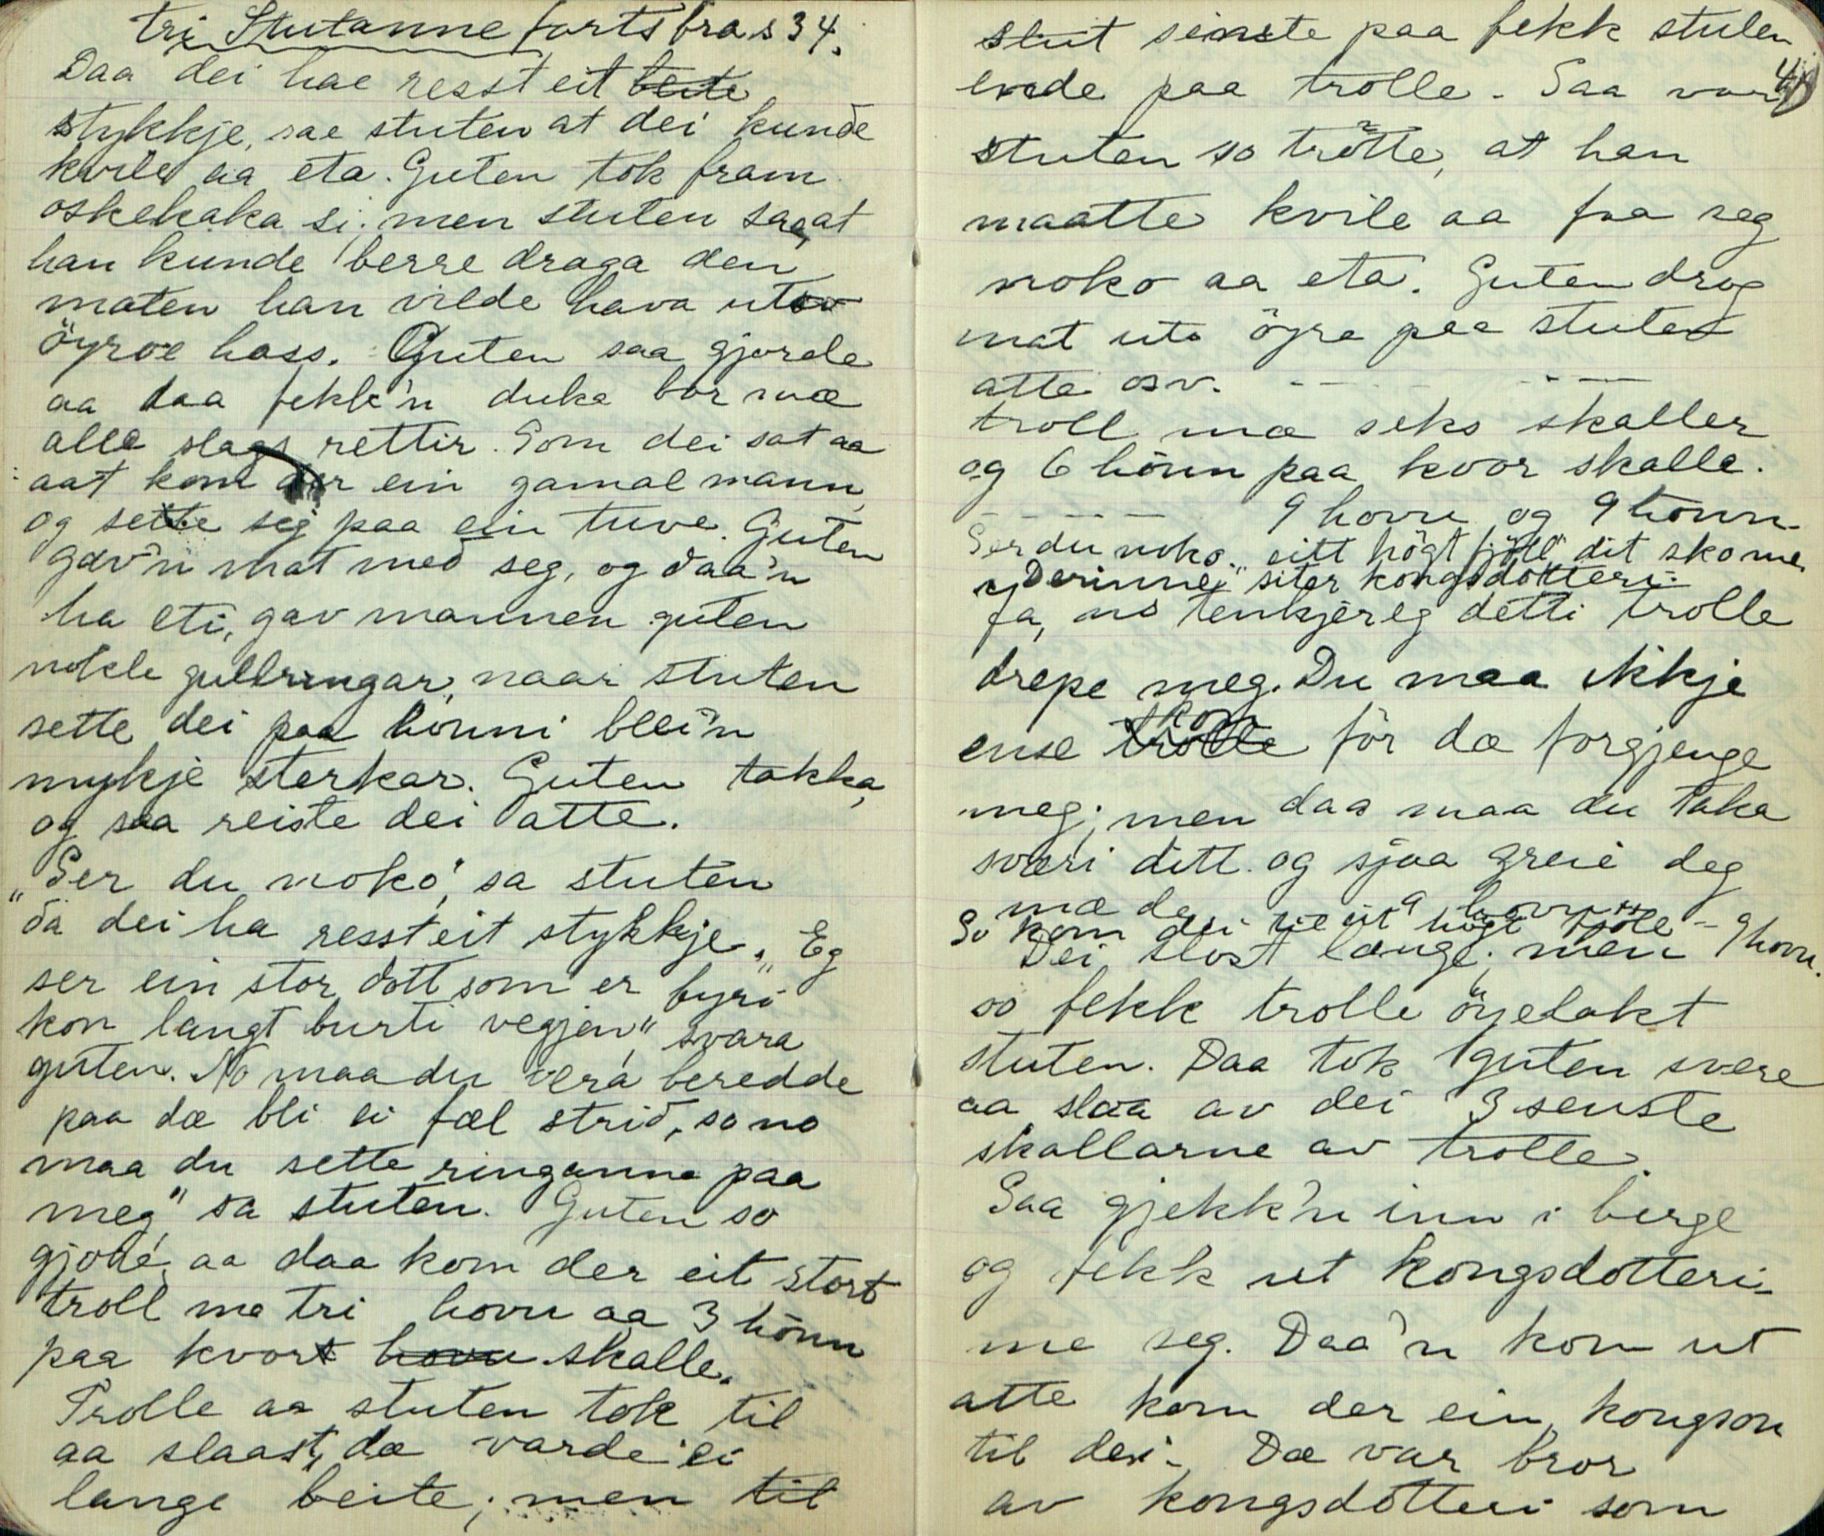 tri Stutanne forts fra s 34.
Daa dei hae resst eit beite
stykkje, sae stuten at dei kunde
kvile aa eta. Guten tok fram
oskekaka si. men stuten sae at
han kunde berre draga den
maten han vilde hava utav
öyroe hass. Guten saa gjorde
aa daa fekk'n duka bor mæ
alle slags rettir. Som dei sat aa
aat kom der ein gamal mann,
og sette seg paa ein tuve. Guten
gav'n mat med seg, og daa'n
ha eti, gav mannen guten
nokle gullringar, naar stuten
sette dei paa honni blei'n
mykje sterkar. Guten takka,
og saa reiste dei atte.
"Ser du noko", sa stuten
da dei ha resst eit stykkje. "Eg
ser ein stor dott som er byri
kon langt burti vegjen" svara
guten. No maa du vera beredde
paa dæ bli ei fæl strid, so no
maa du sette ringanne paa
meg" sa stuten. Guten so
gjode, aa daa kom der eit stort
troll me tri hovu aa 3 hönn
paa kvort hovu skalle.
Trolle aa stuten tok til
aa slaast, dæ varde ei
lange beite; men til
slut sinste paa fekk stuten
evede paa trolle. Saa var
41
stuten so trötte, at han
maatte kvile aa faa seg
noko aa eta. Guten drog
mat uto öyra paa stuten
atte osv. - - -
troll mæ seks skaller
og 6 hönn paa kvor skalle.
- - - - - 9 hovu og 9 honn
Ser du noko. "eitt högt fjöll" dit sko me.
"Derinne" siter kongsdotteri.
Ja, no tenkjer eg detti trolle
drepe meg. Du maa ikkje
ense trolle kom för dæ forgjenge
meg; men daa maa du taka
sværi ditt og sjaa greie deg
mæ de 9 hovu
So kom dei til eit högt fjöll - 9 hovu.
Dei slost længe; men
so fekk trolle öyelakt
stuten. Daa tok guten svære
aa slaa av dei 3 senste
skallarne av trolle.
Saa gjekk'n inn i berge
og fekk ut kongsdotteri
me seg. Daa'n kom ut
atte kom der ein kongson
til dei. Dæ var bror
av kongsdotteri som